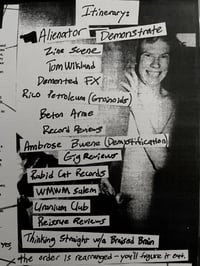 Itinerary:
Alienator Demonstrate
Zine Scene
Tom Wiklund
Demented FX
Rico Petroleum (Grainoids)
Beton Arme
Record Reviews
Ambrose Bwene (Demystification)
Gig Reviews
Rabid Cat Records
WMWM Salem
Uranium Club
Reissue Reviews
Thinking Straight w/a Braised Brain
yes, the order is rearranged - you'll figure it out.